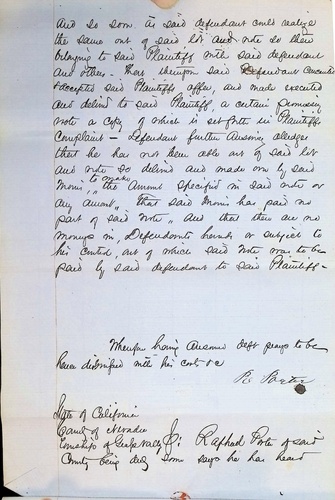 And so soon as said defendant could realize
the same out of said lot and note so then
belonging to said Plaintiff with said defendant
and others - That thereupon said Defendant
accepted said Plaintiffs offer, and made executed
and deliverd to said Plaintiff, a certain promissory
note a copy of which is set forth in Plaintiffs
Complaint - Defendant further Answering alleges
that he has not been able out of said lot
and note so deliverd and made over by said
Morris, to make the Amount specified in said note or
any amount, That said Morris has paid no
part of said Note, And that there are no
moneys in, Defendants hands or subject to
his control, out of which said Note was to be
paid by said defendant to said Plaintiff -
Wherefore having Answered deft prays to be
hence dismissed with his costs &c
State of California
County of Nevada
Township of Grass Valley
County being duly sworn says he has heard